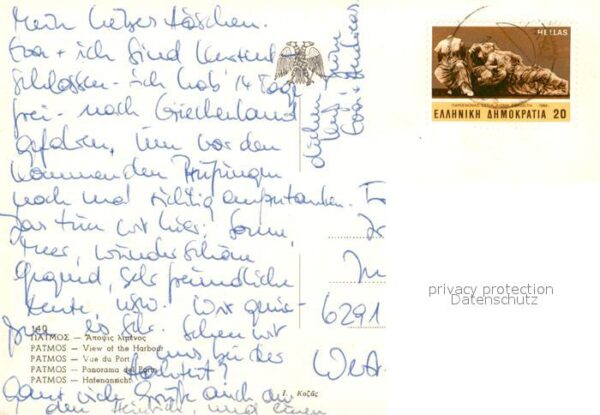 Mein lieber Häschen.
Eva + ich sind kurzent-
schlossen - ich hab' 14 Tage
frei - nach Griechenland
gefahren, um vor den
kommenden Prüfungen
noch mal richtig aufzutanken.
Das tun wir hier: Sonne,
Meer, wunderschöne
Gegend, sehr freundliche
Leute, usw. Wir genie-
ßen es sehr. Sehen wir
uns bei der
Hochzeit?
Ganz viele Grüße auch an
den Heinrich, und einen
lieben
Eva +
6291
HELLAS
ΕΛΛΗΝΙΚΗ ΔΗΜΟΚΡΑΤΙΑ 20
privacy protection
Datenschutz
140
ΠΑΤΜΟΣ — Άποψις λιμένος
PATMOS — View of the Harbour
PATMOS — Vue du Port
PATMOS — Panorama del Porto
PATMOS — Hafenansicht
Ι. Κοζάς